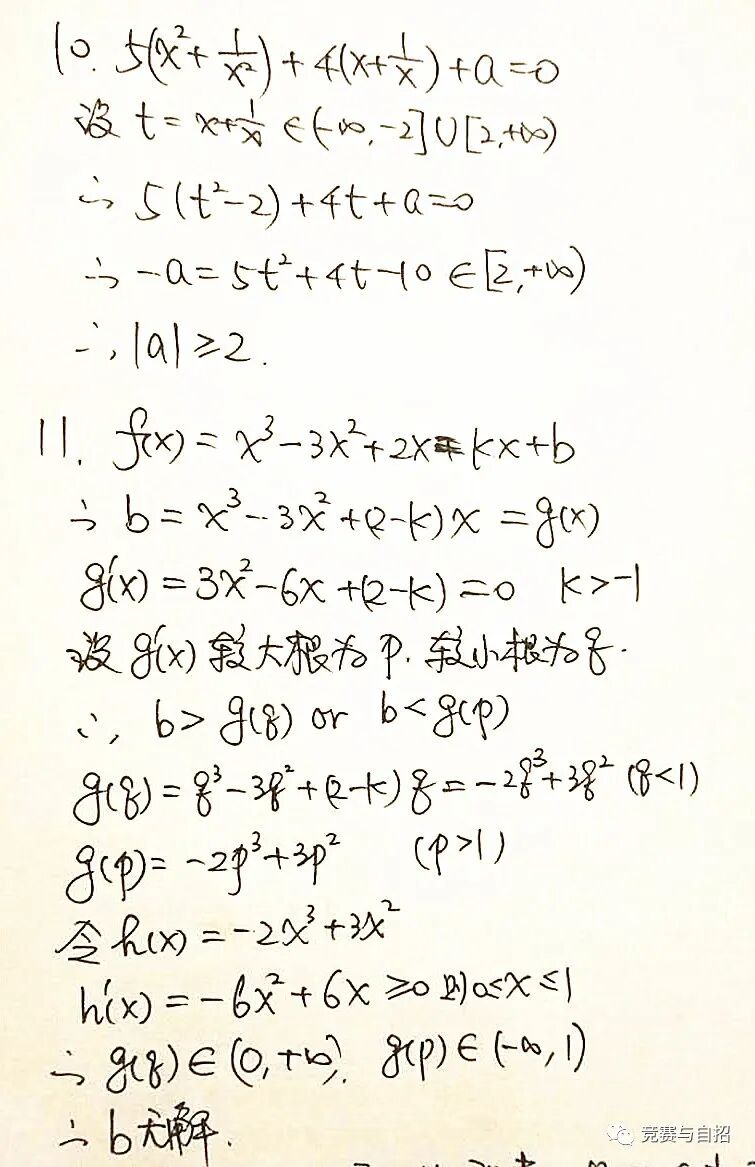 10. 5(x²+1/x²)+4(x+1/x)+a=0
设 t=x+1/x∈(-∞,-2]∪[2,+∞)
∴ 5(t²-2)+4t+a=0
∴ -a=5t²+4t-10∈[2,+∞)
∴, |a|≥2.
11. f(x)=x³-3x²+2x=kx+b
∴ b=x³-3x²+(2-k)x=g(x)
g'(x)=3x²-6x+(2-k)=0 k>-1
设g'(x)较大根为p.较小根为q.
∴, b>g(q) or b<g(p)
g(q)=q³-3q²+(2-k)q=-2q³+3q² (q<1)
g(p)=-2p³+3p² (p>1)
令h(x)=-2x³+3x²
h'(x)=-6x²+6x≥0则0≤x≤1
∴ g(q)∈(0,+∞), g(p)∈(-∞,1)
∴ b无解.
竞赛与自招